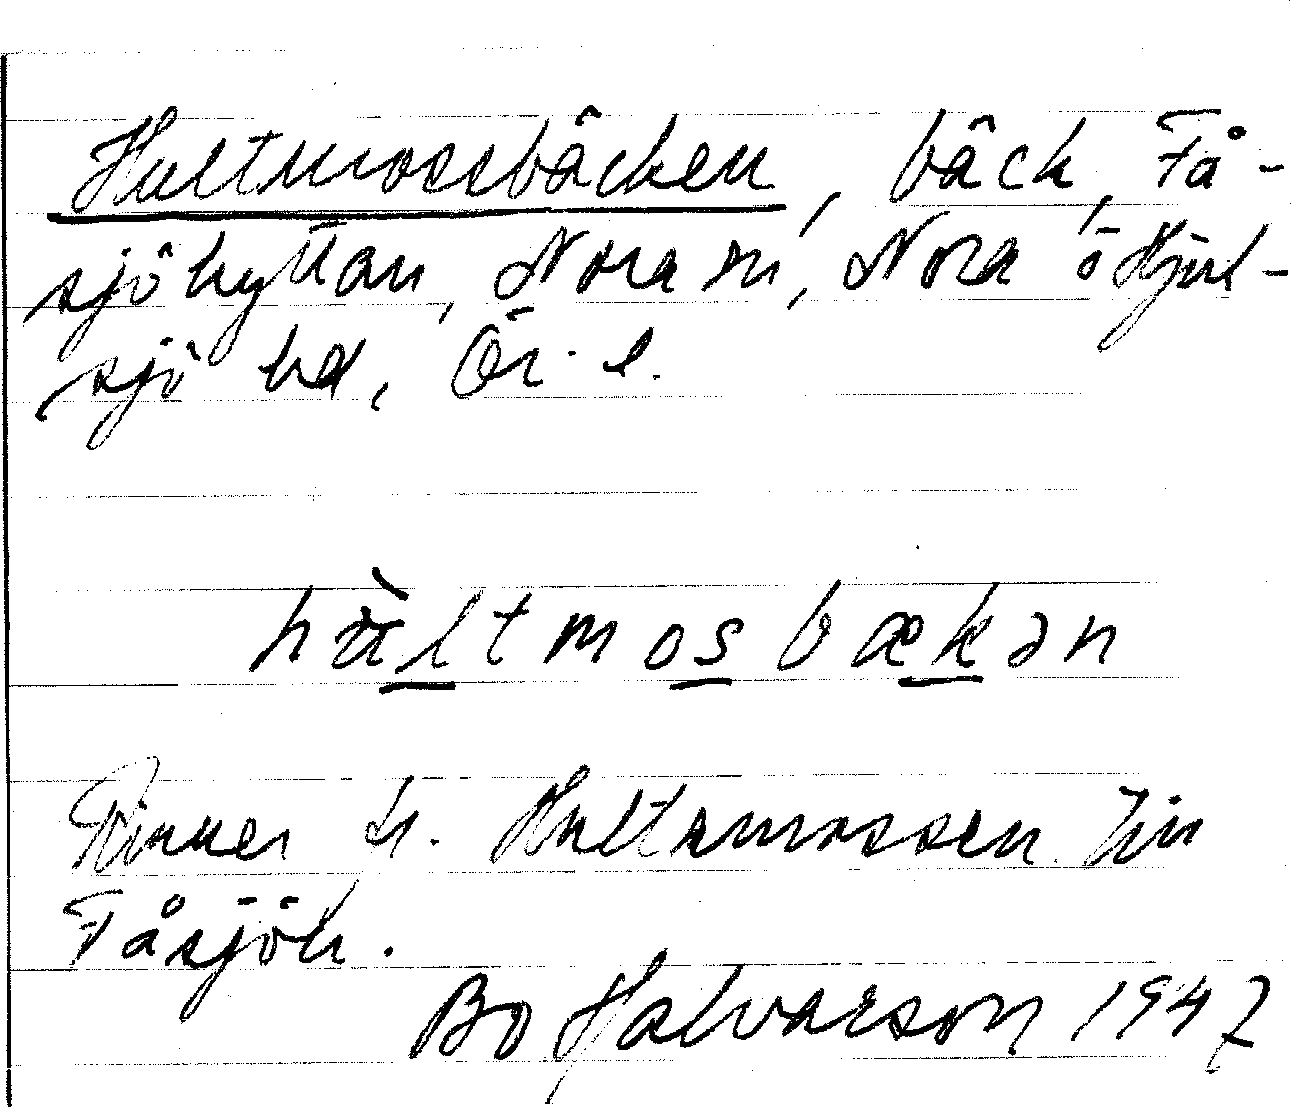 Hultmossbäcken, bäck, Få-
sjöhyttan, Nora sn, Nora o Hjul-
sjö hd, Ör. l.
hùltmosbækən
Rinner fr. Hultamossen till
Fåsjön.
Bo Halvarson 1947